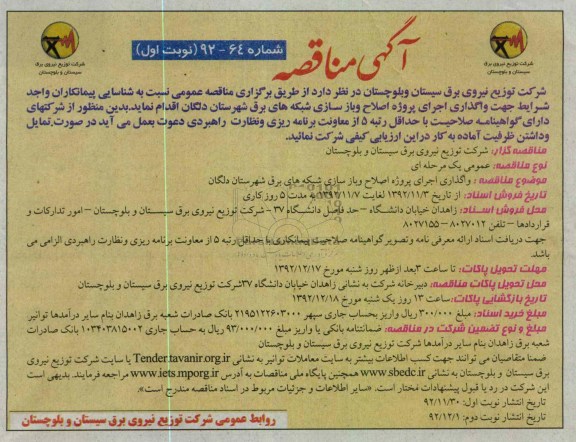 آگهی مناقصه
شماره ۶۴ - ۹۲ (نوبت اول)
شرکت توزیع نیروی برق
سیستان و بلوچستان
شرکت توزیع نیروی برق
سیستان و بلوچستان
شرکت توزیع نیروی برق سیستان وبلوچستان در نظر دارد از طریق برگزاری مناقصه عمومی نسبت به شناسایی پیمانکاران واجد
شرایط جهت واگذاری اجرای پروژه اصلاح وباز سازی شبکه های برق شهرستان دلگان اقدام نماید.بدین منظور از شرکتهای
دارای گواهینامه صلاحیت با حداقل رتبه ۵ از معاونت برنامه ریزی ونظارت راهبردی دعوت بعمل می آید در صورت.تمایل
وداشتن ظرفیت آماده به کار در این ارزیابی کیفی شرکت نمائید.
مناقصه گزار: شرکت توزیع نیروی برق سیستان و بلوچستان
نوع مناقصه: عمومی یک مرحله ای
موضوع مناقصه : واگذاری اجرای پروژه اصلاح وباز سازی شبکه های برق شهرستان دلگان
تاریخ فروش اسناد: از تاریخ ۱۳۹۲/۱۱/۳ لغایت ۱۳۹۲/۱۱/۷ به مدت ۵ روز کاری
محل فروش اسناد: زاهدان خیابان دانشگاه – حد فاصل دانشگاه ۳۷ - شرکت توزیع نیروی برق سیستان و بلوچستان – امور تدارکات و
قراردادها – تلفن ۸۰۲۷۰۱۲ - ۸۰۲۷۱۵۵
جهت دریافت اسناد ارائه معرفی نامه و تصویر گواهینامه صلاحیت پیمانکاری با حداقل رتبه ۵ از معاونت برنامه ریزی ونظارت راهبردی الزامی می
باشد.
مهلت تحویل پاکات: تا ساعت ۳بعد ازظهر روز شنبه مورخ ۱۳۹۲/۱۲/۱۷
محل تحویل پاکات مناقصه: دبیرخانه شرکت به نشانی زاهدان خیابان دانشگاه ۳۷شرکت توزیع نیروی برق سیستان و بلوچستان
تاریخ بازگشایی پاکات: ساعت ۱۳ روز یک شنبه مورخ ۱۳۹۲/۱۲/۱۸
مبلغ خرید اسناد: مبلغ ۳۰۰/۰۰۰ ریال واریز بحساب جاری سپهر ۲۱۹۵۱۲۲۶۰۳۰۰۰ بانک صادرات شعبه برق زاهدان بنام سایر درآمدها توانیر
مبلغ و نوع تضمین شرکت در مناقصه: ضمانتنامه بانکی یا واریز مبلغ ۹۳/۰۰۰/۰۰۰ ریال به حساب جاری ۱۰۳۴۰۳۸۱۵۰۰۲ بانک صادرات
شعبه برق زاهدان بنام سایر درآمدها شرکت توزیع نیروی برق سیستان و بلوچستان
ضمنا متقاضیان می توانند جهت کسب اطلاعات بیشتر به سایت معاملات توانیر به نشانی Tender.tavanir.org.ir یا سایت شرکت توزیع نیروی
برق سیستان و بلوچستان به نشانی www.sbedc.ir همچنین پایگاه ملی مناقصات به آدرس www.iets.mporg.ir مراجعه فرمایند. بدیهی است
این شرکت در رد یا قبول پیشنهادات مختار است. «سایر اطلاعات و جزئیات مربوط در اسناد مناقصه مندرج است».
تاریخ انتشار نوبت اول: ۹۲/۱۱/۳۰
تاریخ انتشار نوبت دوم: ۹۲/۱۲/۱
روابط عمومی شرکت توزیع نیروی برق سیستان و بلوچستان